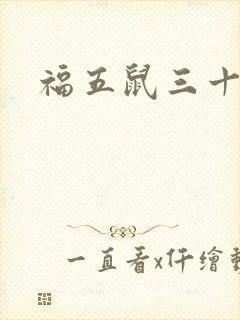 福五鼠三十
一直看x仟繪動